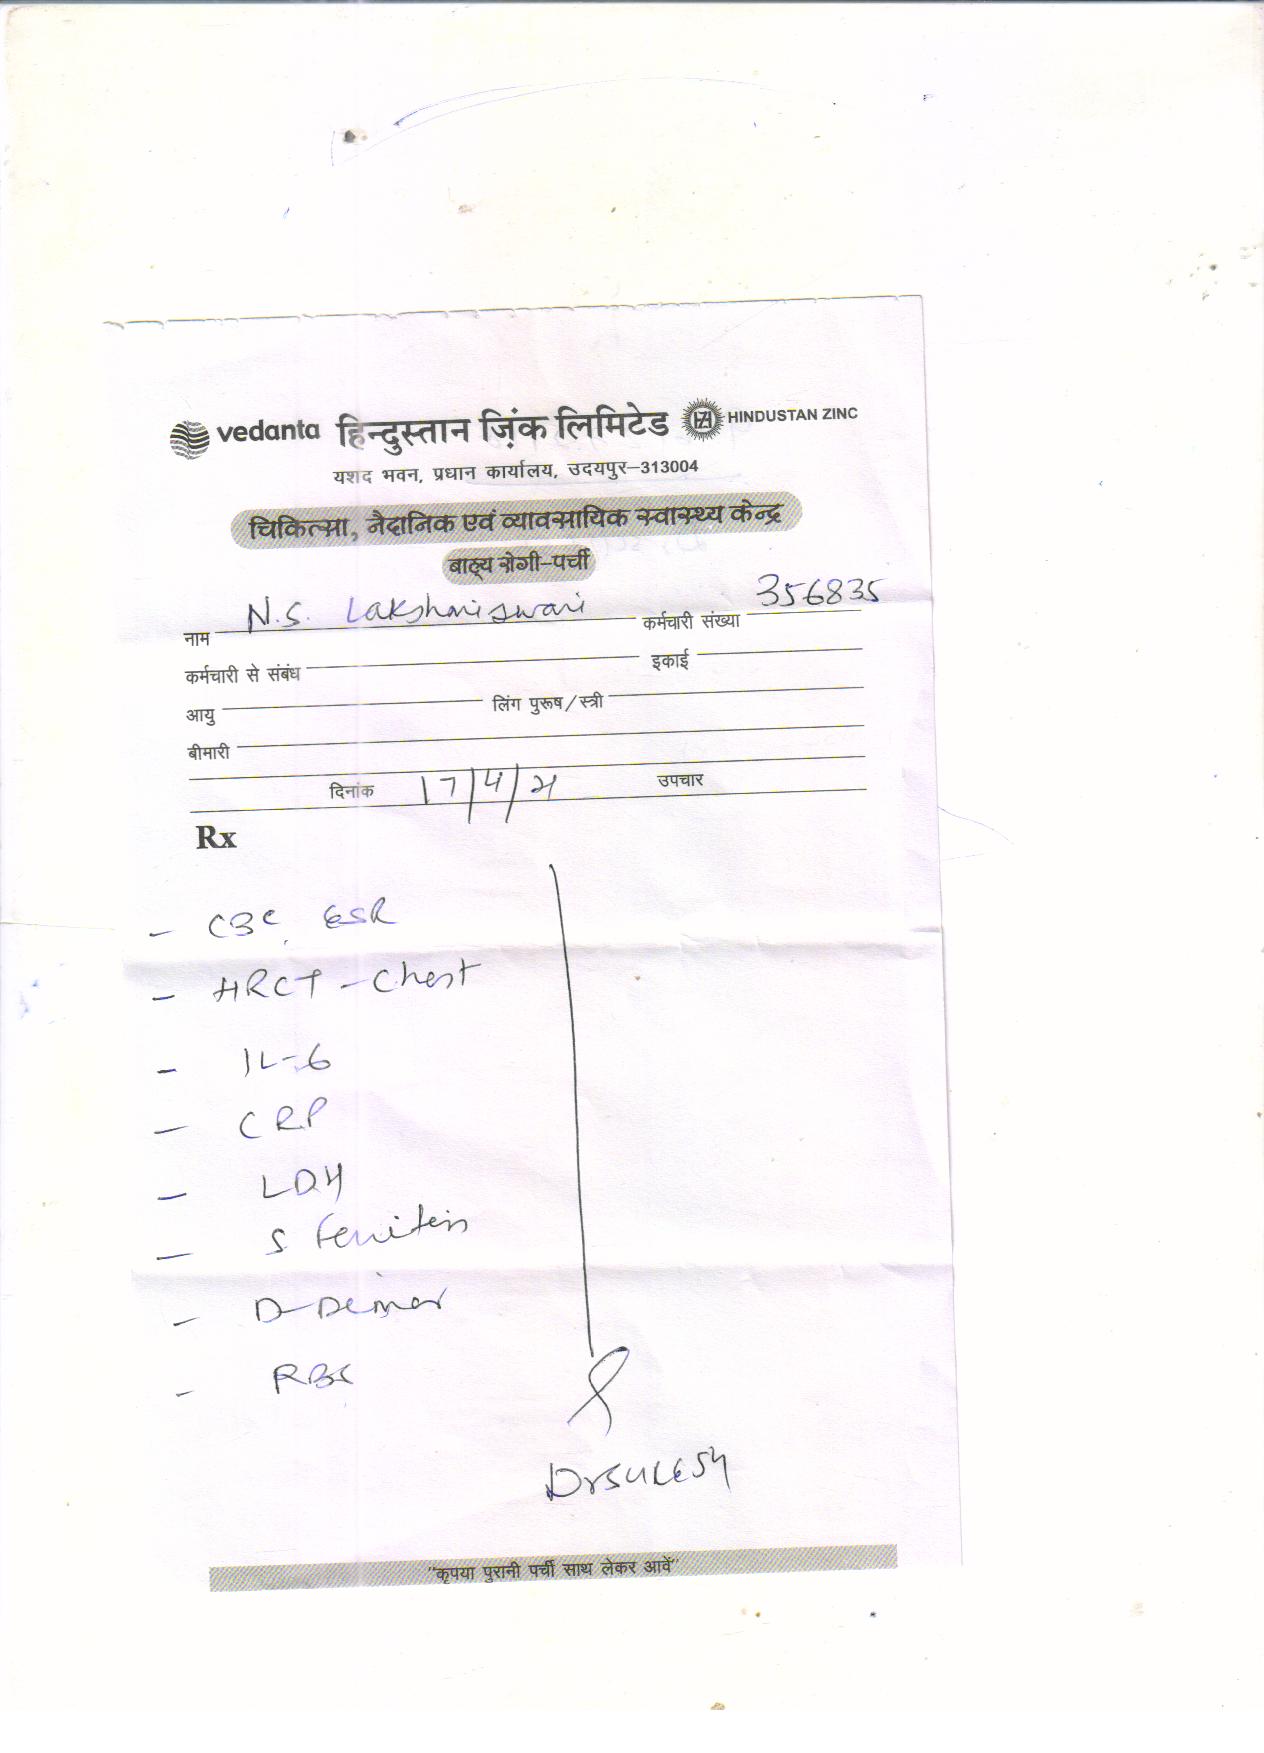 vedanta हिन्दुस्तान ज़िंक लिमिटेड HZL HINDUSTAN ZINC
यशद भवन, प्रधान कार्यालय, उदयपुर–313004
चिकित्सा, नैदानिक एवं व्यावसायिक स्वास्थ्य केन्द्र
बाह्य रोगी–पर्ची
नाम N.S. Lakshmiswari कर्मचारी संख्या 356835
कर्मचारी से संबंध इकाई
आयु लिंग पुरूष/स्त्री
बीमारी
दिनांक 17/4/21 उपचार
Rx
– CBC, ESR
– HRCT – Chest
– IL-6
– CRP
– LDH
– S Ferritin
– D-Dimer
– RBS
Dr SURESH
"कृपया पुरानी पर्ची साथ लेकर आवें"